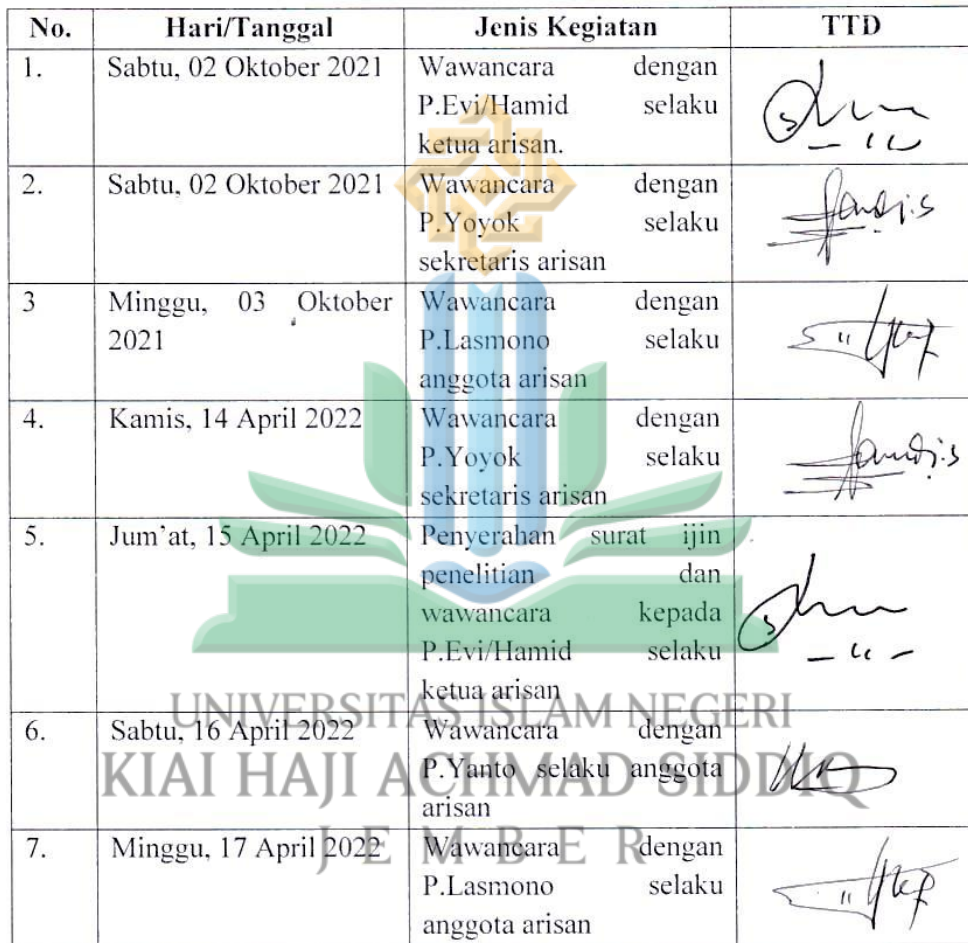 No. Hari/Tanggal Jenis Kegiatan TTD
1. Sabtu, 02 Oktober 2021 Wawancara dengan
P.Evi/Hamid selaku
ketua arisan.
2. Sabtu, 02 Oktober 2021 Wawancara dengan
P.Yoyok selaku
sekretaris arisan
3 Minggu, 03 Oktober Wawancara dengan
2021 P.Lasmono selaku
anggota arisan
4. Kamis, 14 April 2022 Wawancara dengan
P.Yoyok selaku
sekretaris arisan
5. Jum'at, 15 April 2022 Penyerahan surat ijin
penelitian dan
wawancara kepada
P.Evi/Hamid selaku
ketua arisan
UNIVERSITAS ISLAM NEGERI
6. Sabtu, 16 April 2022 Wawancara dengan
KIAI HAJI ACHMAD SIDDIQ
P.Yanto selaku anggota
arisan
JEMBER
7. Minggu, 17 April 2022 Wawancara dengan
P.Lasmono selaku
anggota arisan